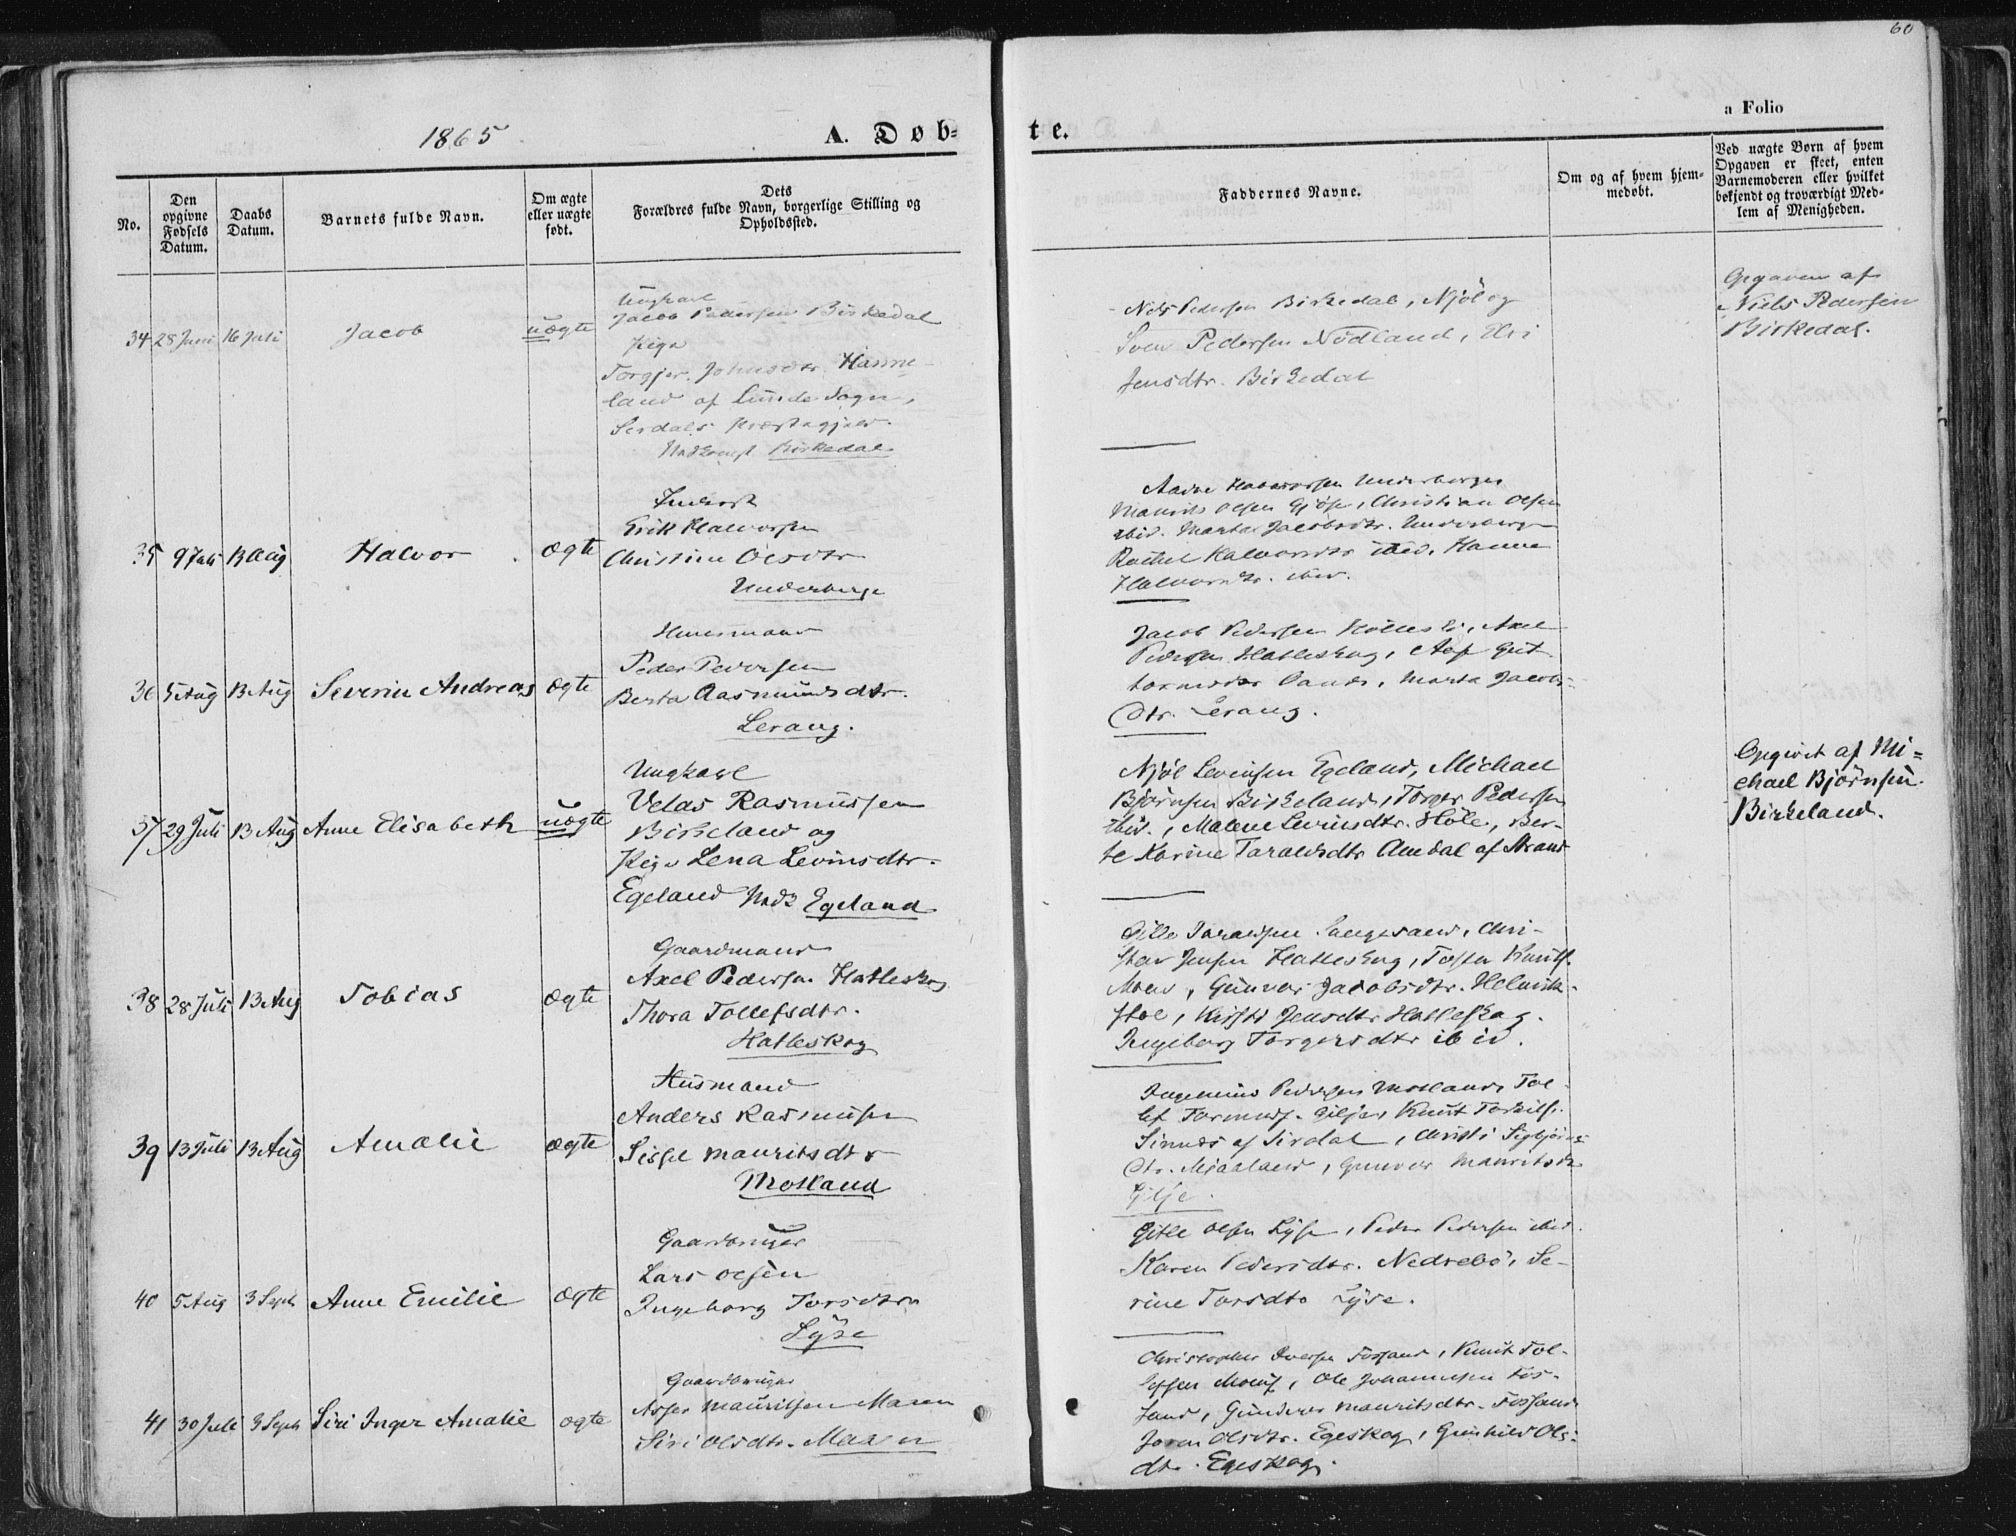 60
a Folio
1865
A. Døb-
te.
No.
Den opgivne Fødsels Datum.
Daabs Datum.
Barnets fulde Navn.
Om ægte eller uægte født.
Dets Forældres fulde Navn, borgerlige Stilling og Opholdssted.
Faddernes Navne.
Om og af hvem hjemmedøbt.
Ved uægte Børn af hvem Opgaven er skeet, enten Barnemoderen eller hvilket bekjendt og troværdigt Medlem af Menigheden.
34 28 Juni 16 Juli Jacob uægte
Ungkarl
Jacob Pedersen Birkedal
Pige
Torgjer. Johnsdtr. Hanne-
land af Lunde Sogn,
Sirdals Præstegjeld.
Nadkongst Birkedal
Nels Pedersen Birkedal, Njøl og
Sven Pedersen Nødland, Elri
Jensdtr. Birkedal
Opgaven af
Niels Pedersen
Birkedal.
35 9 Juli 13 Aug Halvor ægte
Inderst
Erik Halvorsen
Christine Olsdtr
Underberge
Aadne Halvorsen Underberge
Maurits Olsen Gjøse, Christian Olsen
ibid. Marta Jacobsdtr. Underberge
Rachel Halvorsdtr ibid. Hanne
Halvorsdtr. ibid.
36 5 Aug 13 Aug Severin Andreas ægte
Huusmand
Peder Pedersen
Berta Aasmunds dtr.
Lerang.
Jacob Pedersen Kollesli, Axel
Pedersen Hatleskog,
Marta Jacobs-
dtr. Lerang.
37 29 Juli 13 Aug Anne Elisabeth uægte
Ungkarl
Velas Rasmussen
Birkeland og
Pige Lena Levinsdtr.
Egeland Nadk Egeland
Njøl Levinsen Egeland, Michael
Bjørnsen Birkeland, Torger Pedersen
ibid., Malene Levinsdtr. Høle, Ber-
te Karine Taraldsdtr Amdal af Strand
Opgivet af Mi=
chael Bjørnsen
Birkeland.
38 28 Juli 13 Aug Tobias ægte
Gaardmand
Axel Pedersen Hatleskog
Thora Tollefsdtr.
Hatleskog
Gitle Taraldsen Songesand, Chri-
stian Jensen Hatleskog, Tosten Knuts.
Moen, Gunvor Jacobsdtr. Helmik-
stol, Kirsti Jensdtr Hatleskog.
Ingeborg Torgersdtr ibid.
39 13 Juli 13 Aug Amalie ægte
Husmand
Anders Rasmusen
Sissel Mauritsdtr
Motland
Ingemund Pedersen Motland, Tol-
lef Tormods. Gilje, Knut Torkils.
Sinnes af Sirdal, Christi Sigbjørns-
dtr. Mjaaland, Gunvor Mauritsdtr
Gilje.
40 5 Aug 3 Sept Anne Emilie ægte
Gaardbruger
Lars Olsen
Ingeborg Torsdtr
Lyse
Gitle Olsen Lyse, Peder Pedersen ibid.
Karen Pedersdtr. Nedrebø, Se-
rine Torsdtr Lyse.
41 30 Juli 3 Sept Siri Inger Amalie ægte
Gaardbruger
Asser Mauritsen Maren
Siri Olsdtr. Maren
Christopher Iversen Fossand, Knut Tol-
lefsen Moen, Ole Johannesen Fos-
sand, Gunder Mauritsdtr. Fossand
Joren Olsdtr. Egeskog, Gunhild Ols-
dtr. Egeskog.